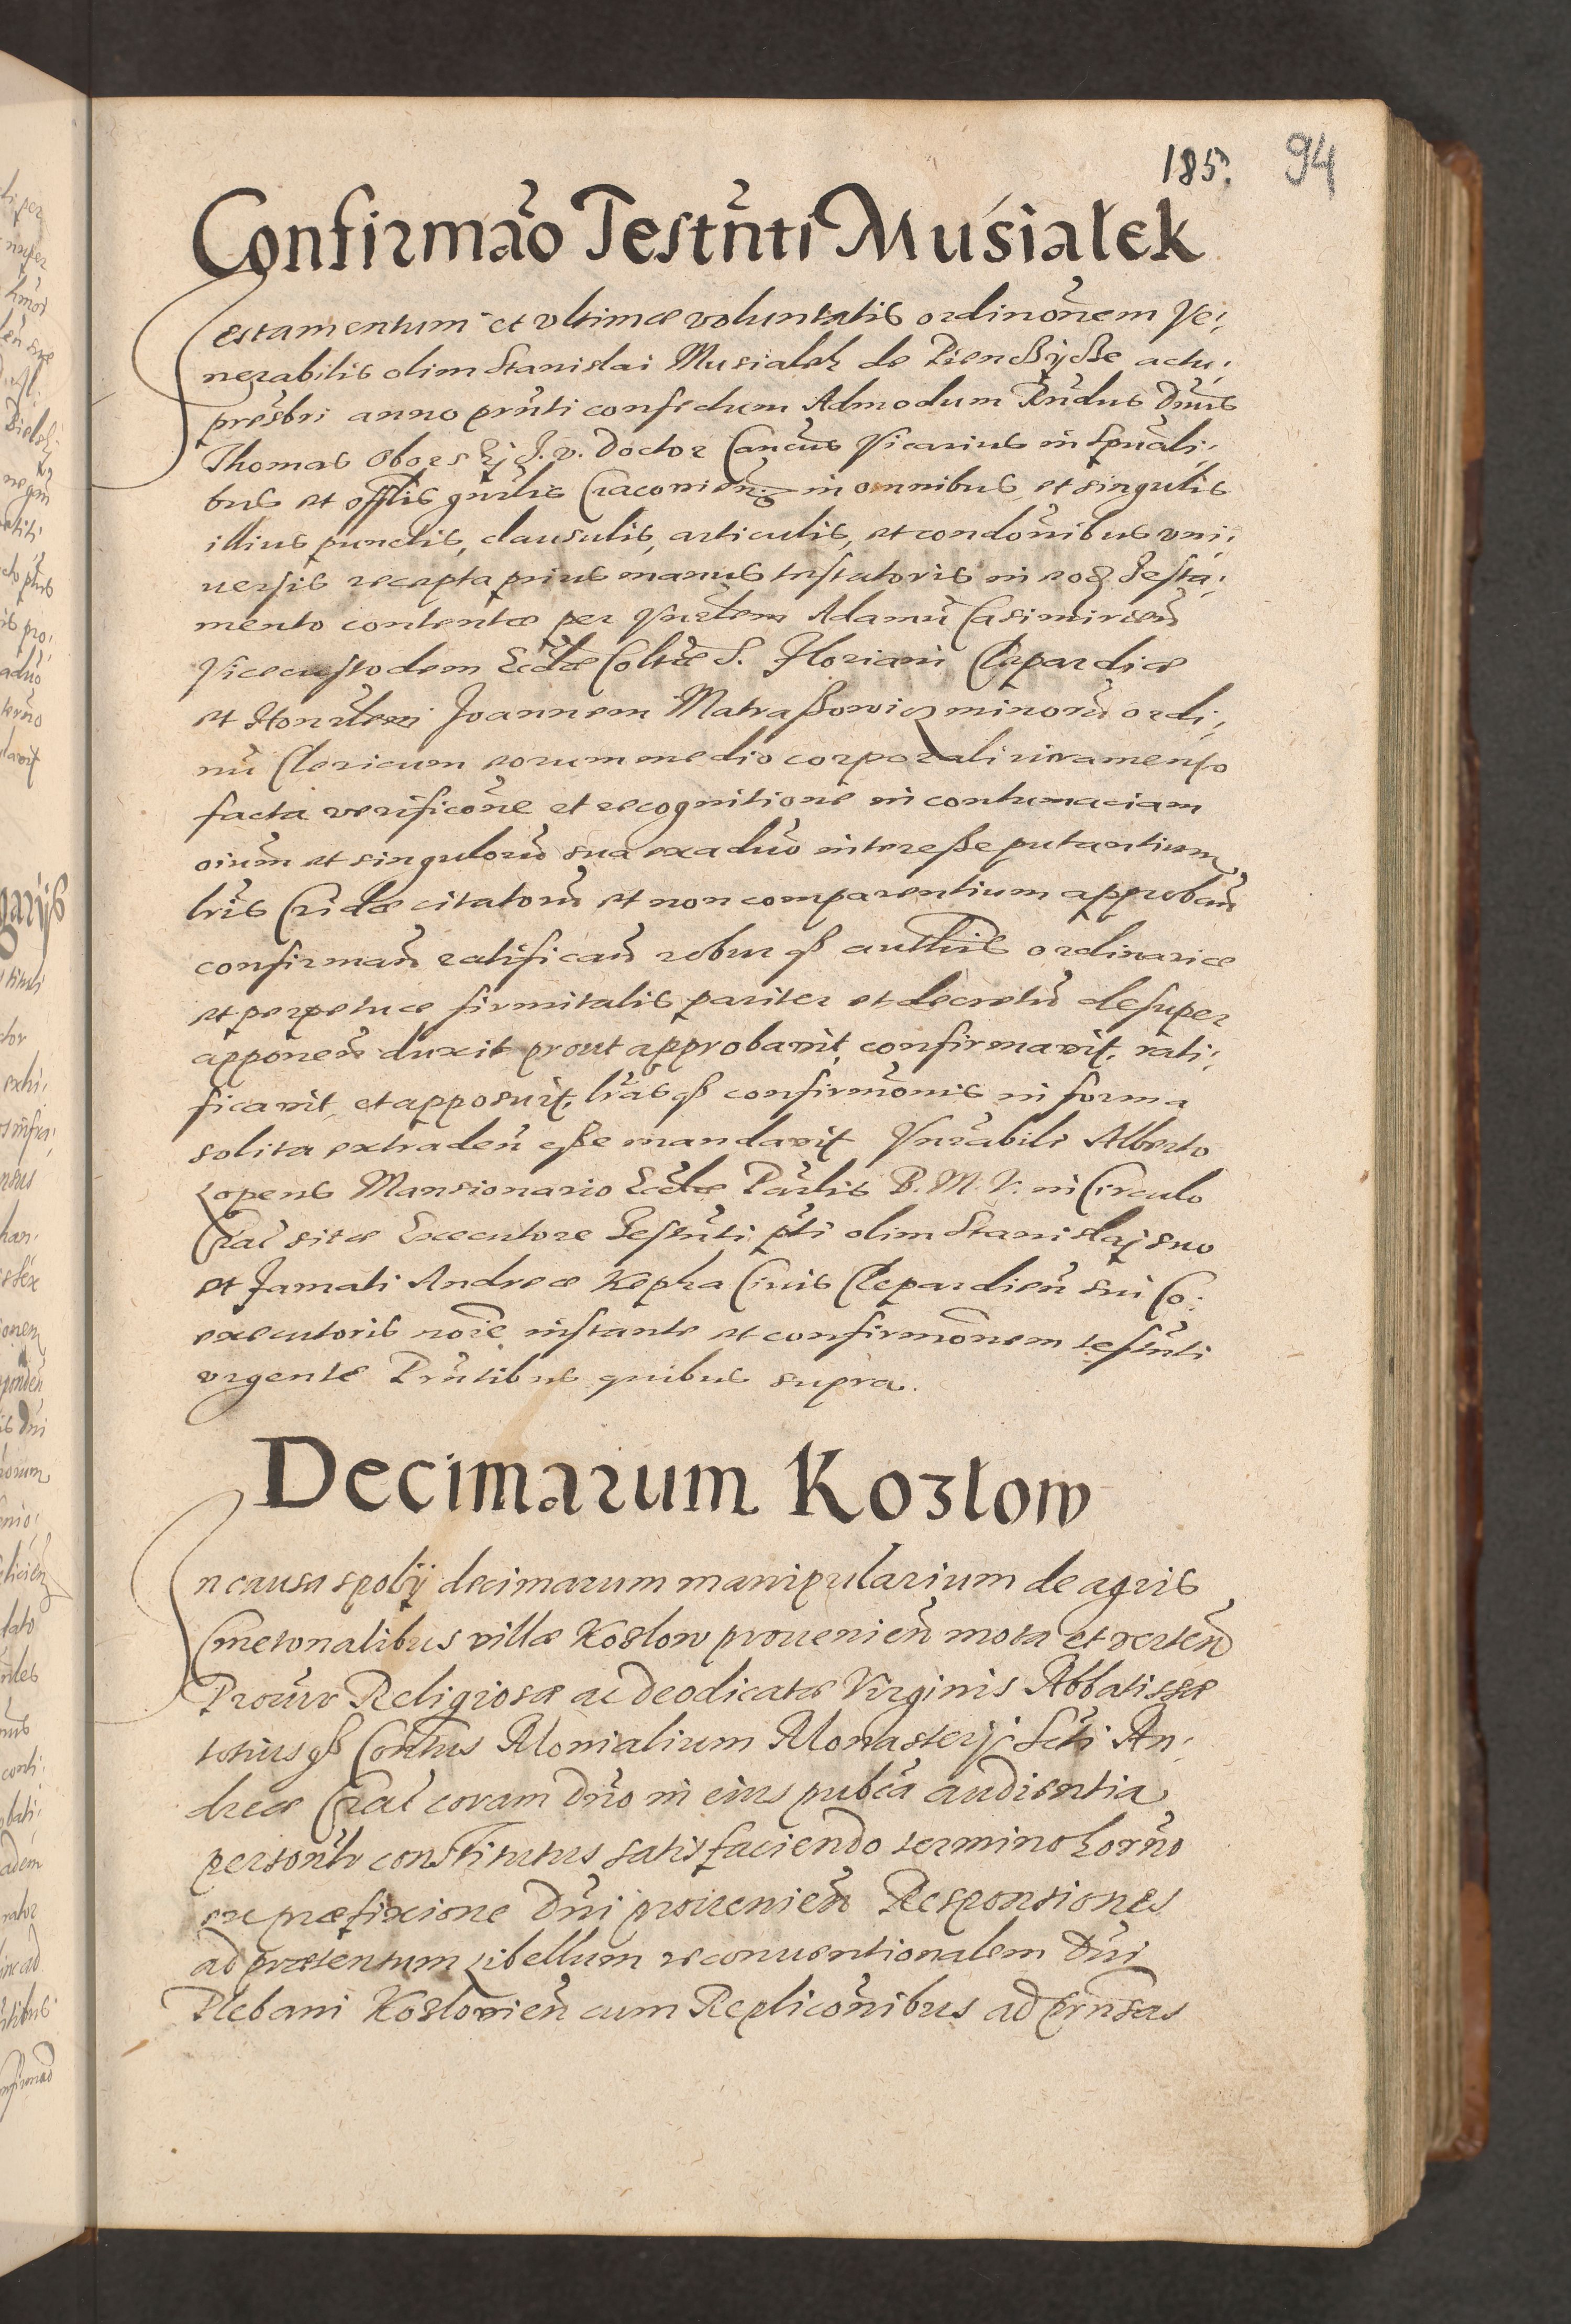 185. 94
Confirmão Testñti Musiałek
Testamentum et vltimæ voluntatis ordinõnem Ve,
nerabilis olim Stanislai Musialek de actu,
presbri anno prñti confectum Admodum Rñdus Dñus
Thomas Oborski J. v. Doctor Cancus Vicarius in Spũali,
bus et offlis gñrlis Cracouieñ: in omnibus et singulis
illius punctis, clausulis, articulis, et condõnibus vni,
uersis recepta prius manus testatoris in eoq Testa,
mento contentæ per Vnrlem Adamũ Casimirieñ
Vicecustodem Eccłæ Colltæ S. Floriani Clepardiæ
et Honrlem Joannem Matraßowicz minorũ ordi,
nũ Clericum eorum medio corporali iuramento
facta verificõne et recognitione in contumaciam
oium et singulorũ sua exaduo intereße putantium
lris Cridæ citatorũ et non comparentium approbañ
confirmañ ratificañ robur qß authtis ordinariæ
et perpetuæ firmitatis pariter et decretũ desuper
apponeñ duxit prout approbauit, confirmauit, rati,
ficauit, et apposuit, lras qß confirmõnis in forma
solita extradeñ eße mandauit Vnrabili Alberto
Lopens Mansionario Eccłæ Parlis B. M. V. in Circulo
Crac sitæ Executore Testñti pti olim Stanislaj suo
et Famati Andreæ Kepka Ciuis Clepardieñ sui Co,
executoris noie instante et confirmõnem testñti
vrgente Prñtibus quibus supra.
Decimarum Kozłow
In causa spolij decimarum manipularium de agris
Cmetonalibus villæ Kozlow proueniẽn mota et verteñ
Procur Religiosæ ac Deodicatæ Virginis Abbatissæ
totius qß Conũtus Monialium Monasterij Scti An,
dreæ Crac coram Dño in eius pubca audientia
personłr constitutus satisfaciendo termino horño
ex præfixione Dñi proueniẽn Responsiones
ad prætensum Libellum reconuentionalem Dñi
Plebani Kozlouieñ cum Replicõnibus ad prætensas